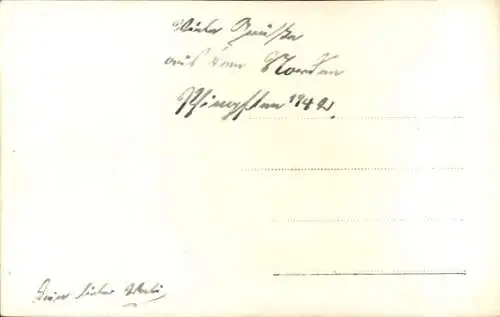 Viele Grüße
aus dem Norden
Pfingsten 1942.
Dein lieber